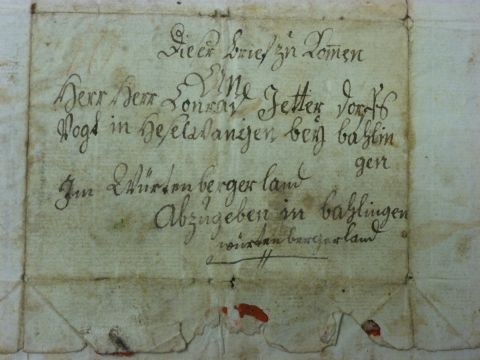 Dieer brief zu komen
An
Herr Herr Conrad Jetter dorfs
Vogt in Heselwangen bey bahlin
gen
Im Würtenbergerland
Abzugeben in bahlingen
würtenbergerland